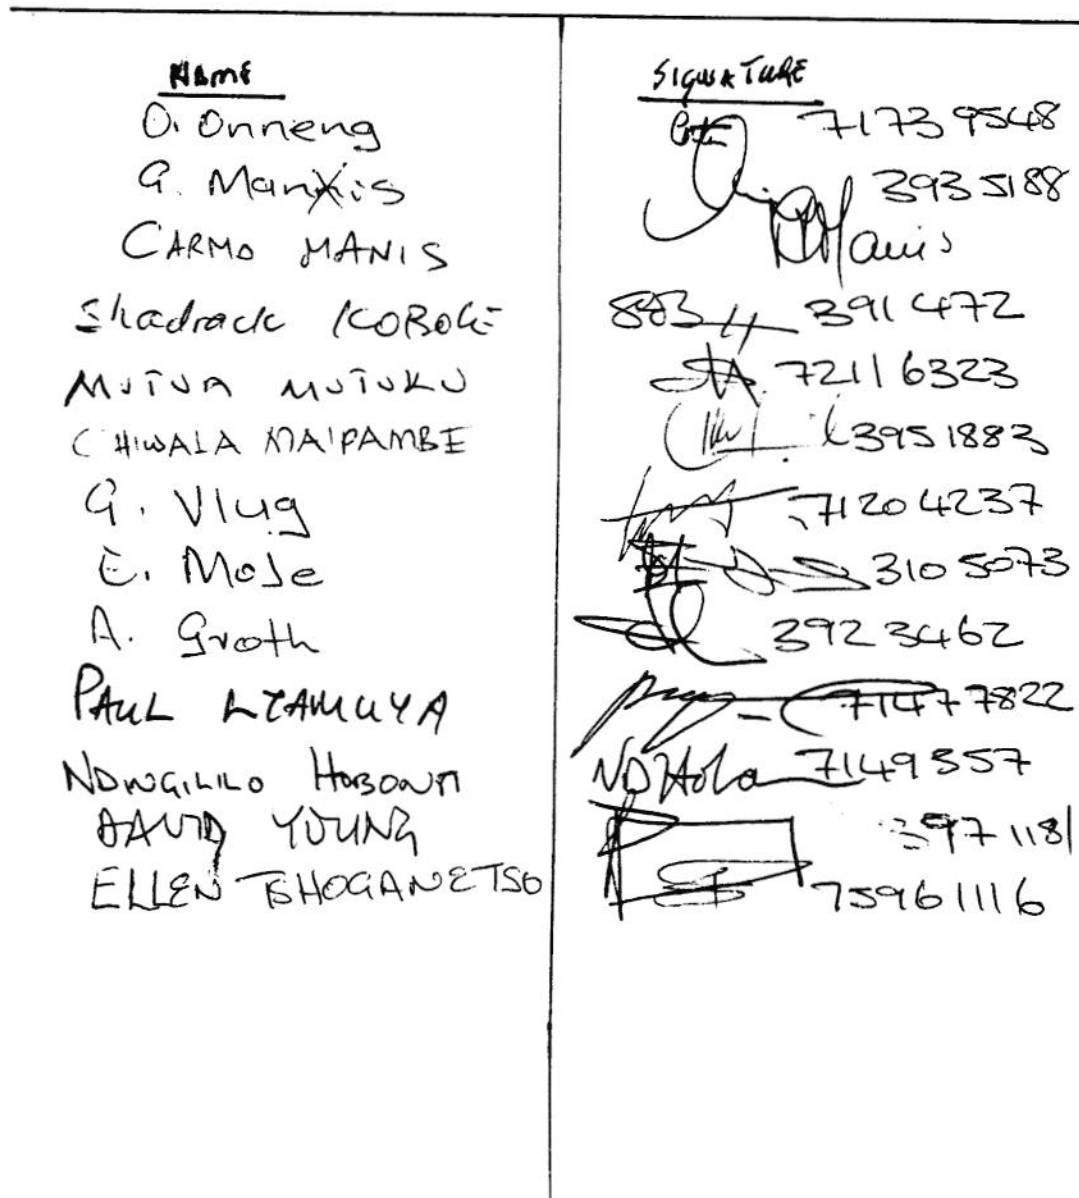 NAME SIGNATURE
O. Onneng 7173 9548
G. Manxis 393 5188
CARMO MANIS Manis
Shadrack KOBOKE 391 472
MUTUA MUTUKU 7211 6323
CHIWALA MAIPAMBE 395 1883
G. Vlug 7120 4237
E. Mose 310 5073
A. Groth 392 3462
PAUL LYAMUYA 7147 7822
NDWGILILO HOBONA 7149 357
DAVID YOUNG 397 1181
ELLEN TSHOGANETSO 75961116